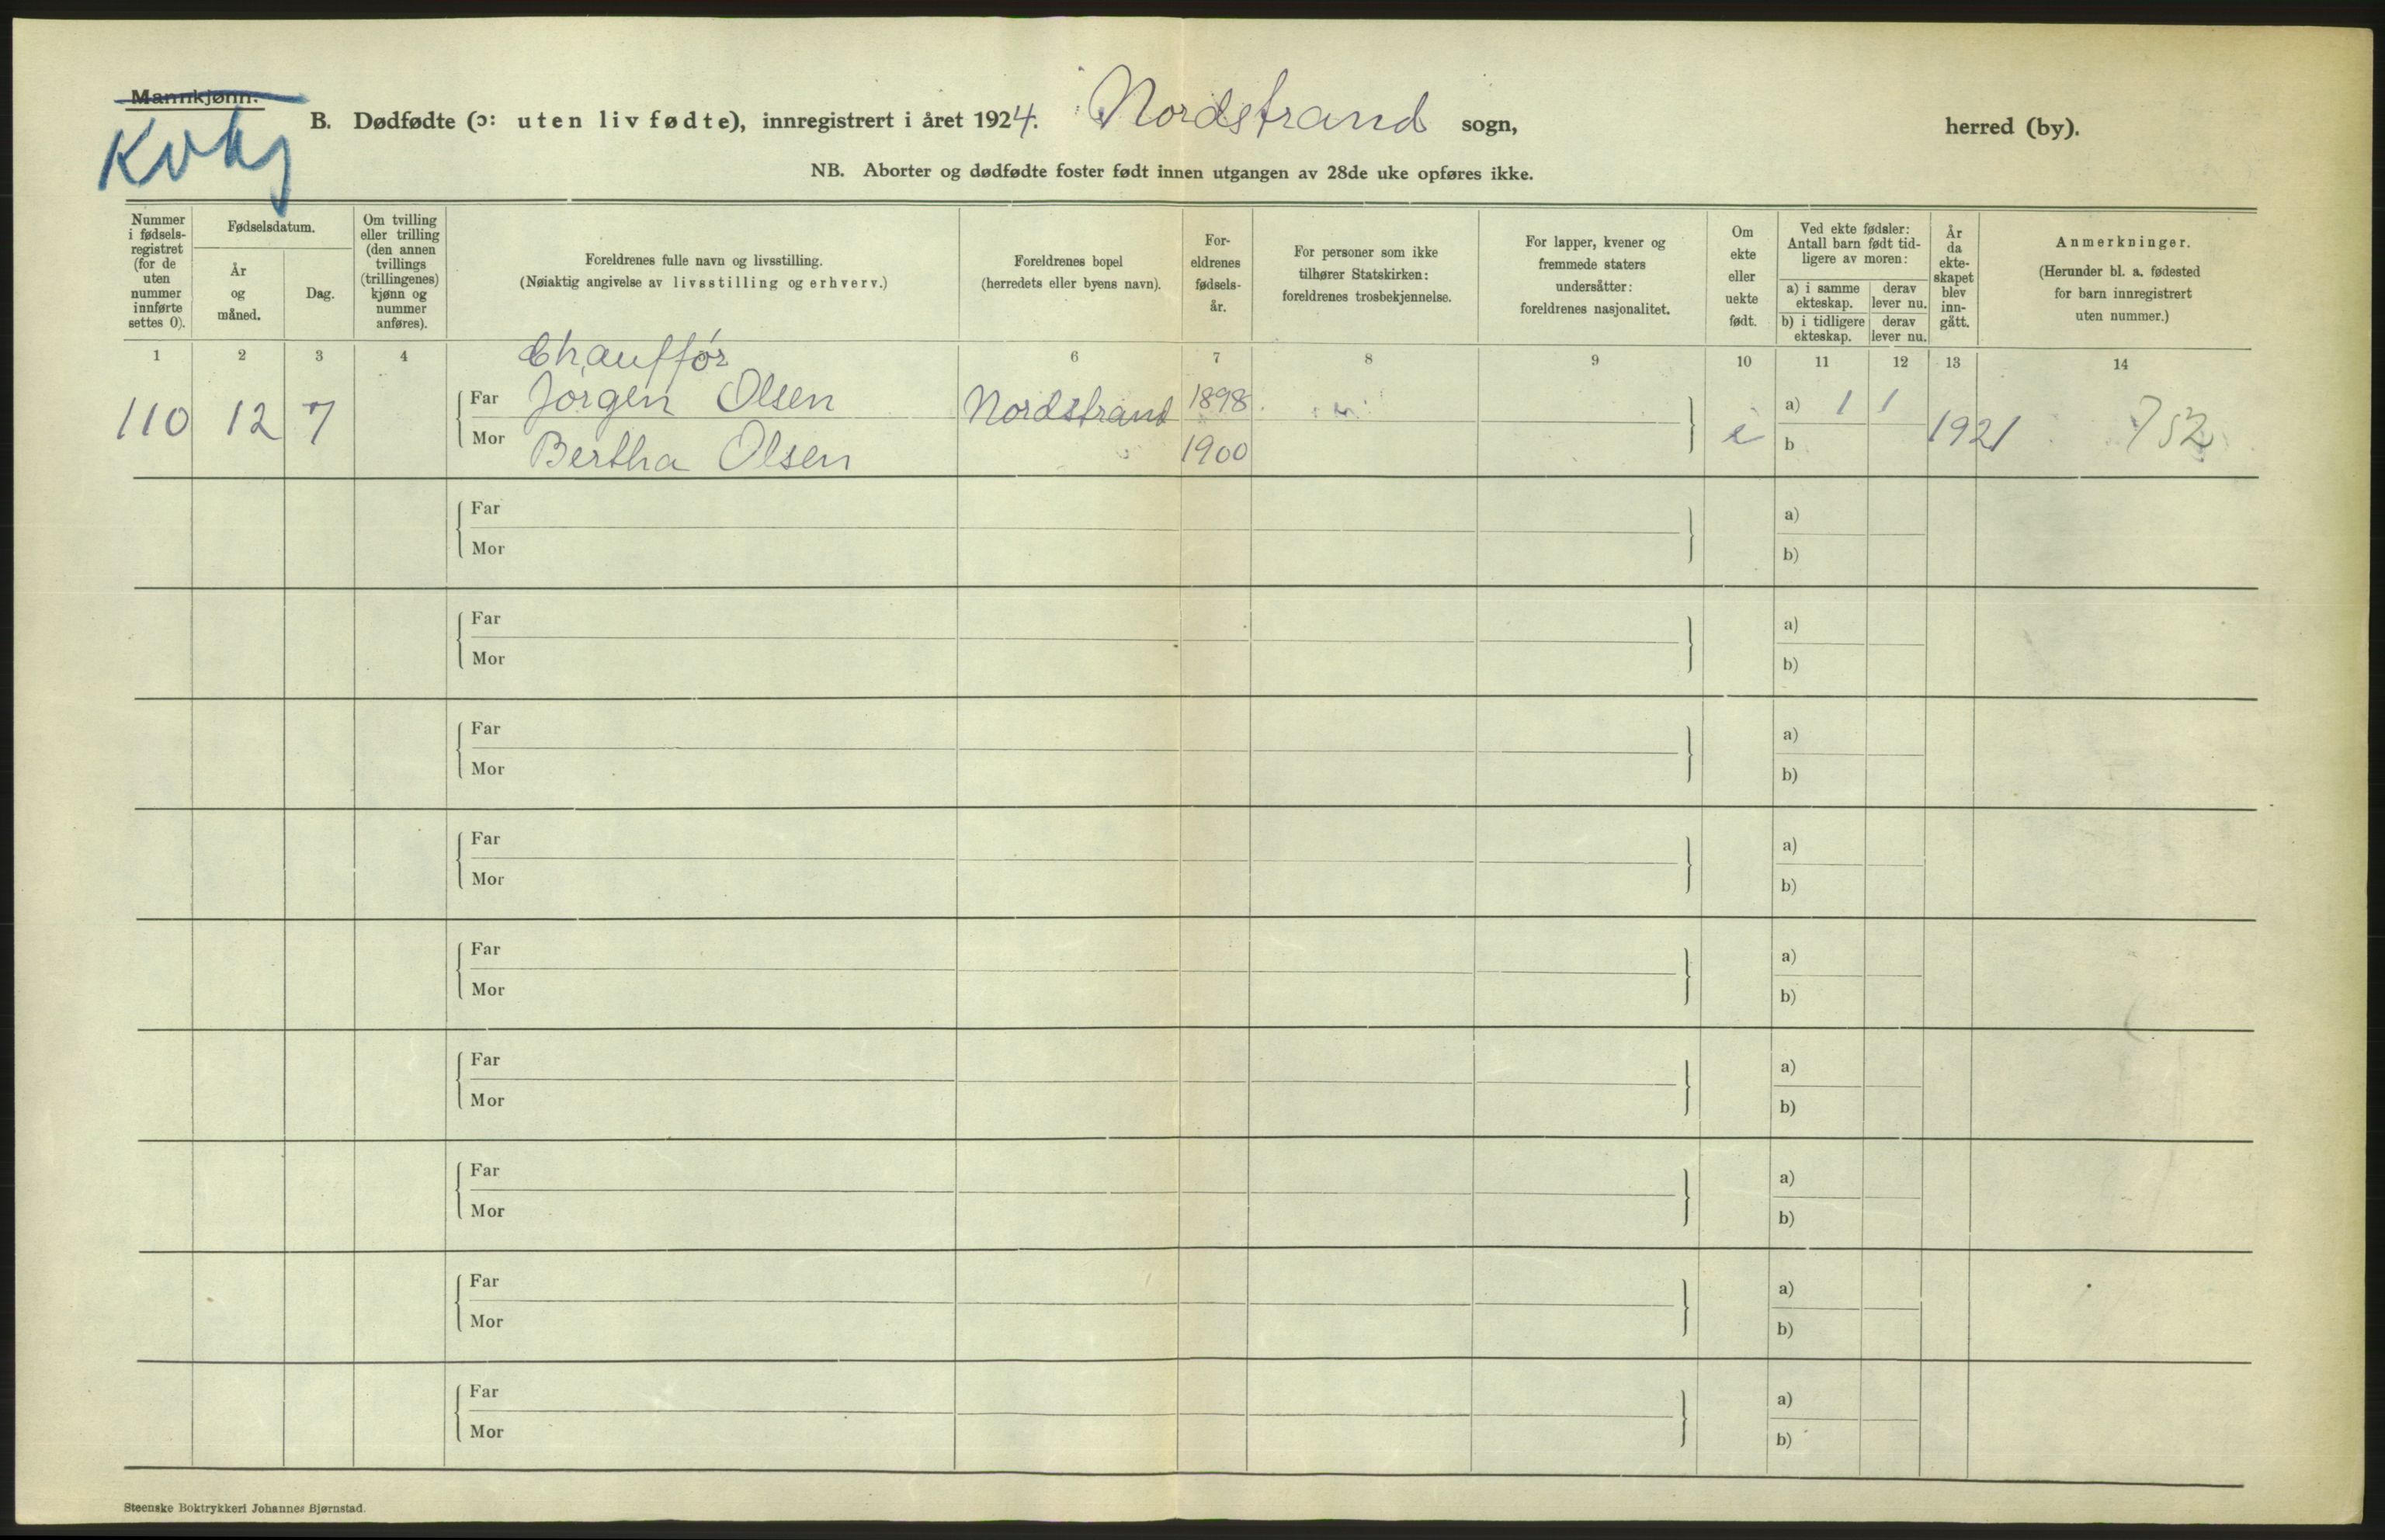 Mannkjønn.
Kvkj
B. Dødfødte (ɔ: uten liv fødte), innregistrert i året 1924. Nordstrand sogn, herred (by).
NB. Aborter og dødfødte foster født innen utgangen av 28de uke opføres ikke.
Nummer i fødsels- registret (for de uten nummer innførte settes 0).
Fødselsdatum.
År og måned.
Dag.
Om tvilling eller trilling (den annen tvillings (trillingenes) kjønn og nummer anføres).
Foreldrenes fulle navn og livsstilling.
(Nøiaktig angivelse av livsstilling og erhverv.)
Foreldrenes bopel
(herredets eller byens navn).
For- eldrenes fødsels- år.
For personer som ikke tilhører Statskirken: foreldrenes trosbekjennelse.
For lapper, kvener og fremmede staters undersåtter: foreldrenes nasjonalitet.
Om ekte eller uekte født.
Ved ekte fødsler: Antall barn født tid- ligere av moren:
a) i samme ekteskap.
derav lever nu.
b) i tidligere ekteskap.
derav lever nu.
År da ekte- skapet blev inn- gått.
Anmerkninger.
(Herunder bl. a. fødested for barn innregistrert uten nummer.)
1 2 3 4 6 7 8 9 10 11 12 13 14
Chauffør
110 12 7 Far Jørgen Olsen Nordstrand 1898 a) 1 1
Mor Bertha Olsen 1900 e b 1921 752
Far a)
Mor b)
Far a)
Mor b)
Far a)
Mor b)
Far a)
Mor b)
Far a)
Mor b)
Far a)
Mor b)
Far a)
Mor b)
Far a)
Mor b)
Far a)
Mor b)
Steenske Boktrykkeri Johannes Bjørnstad.